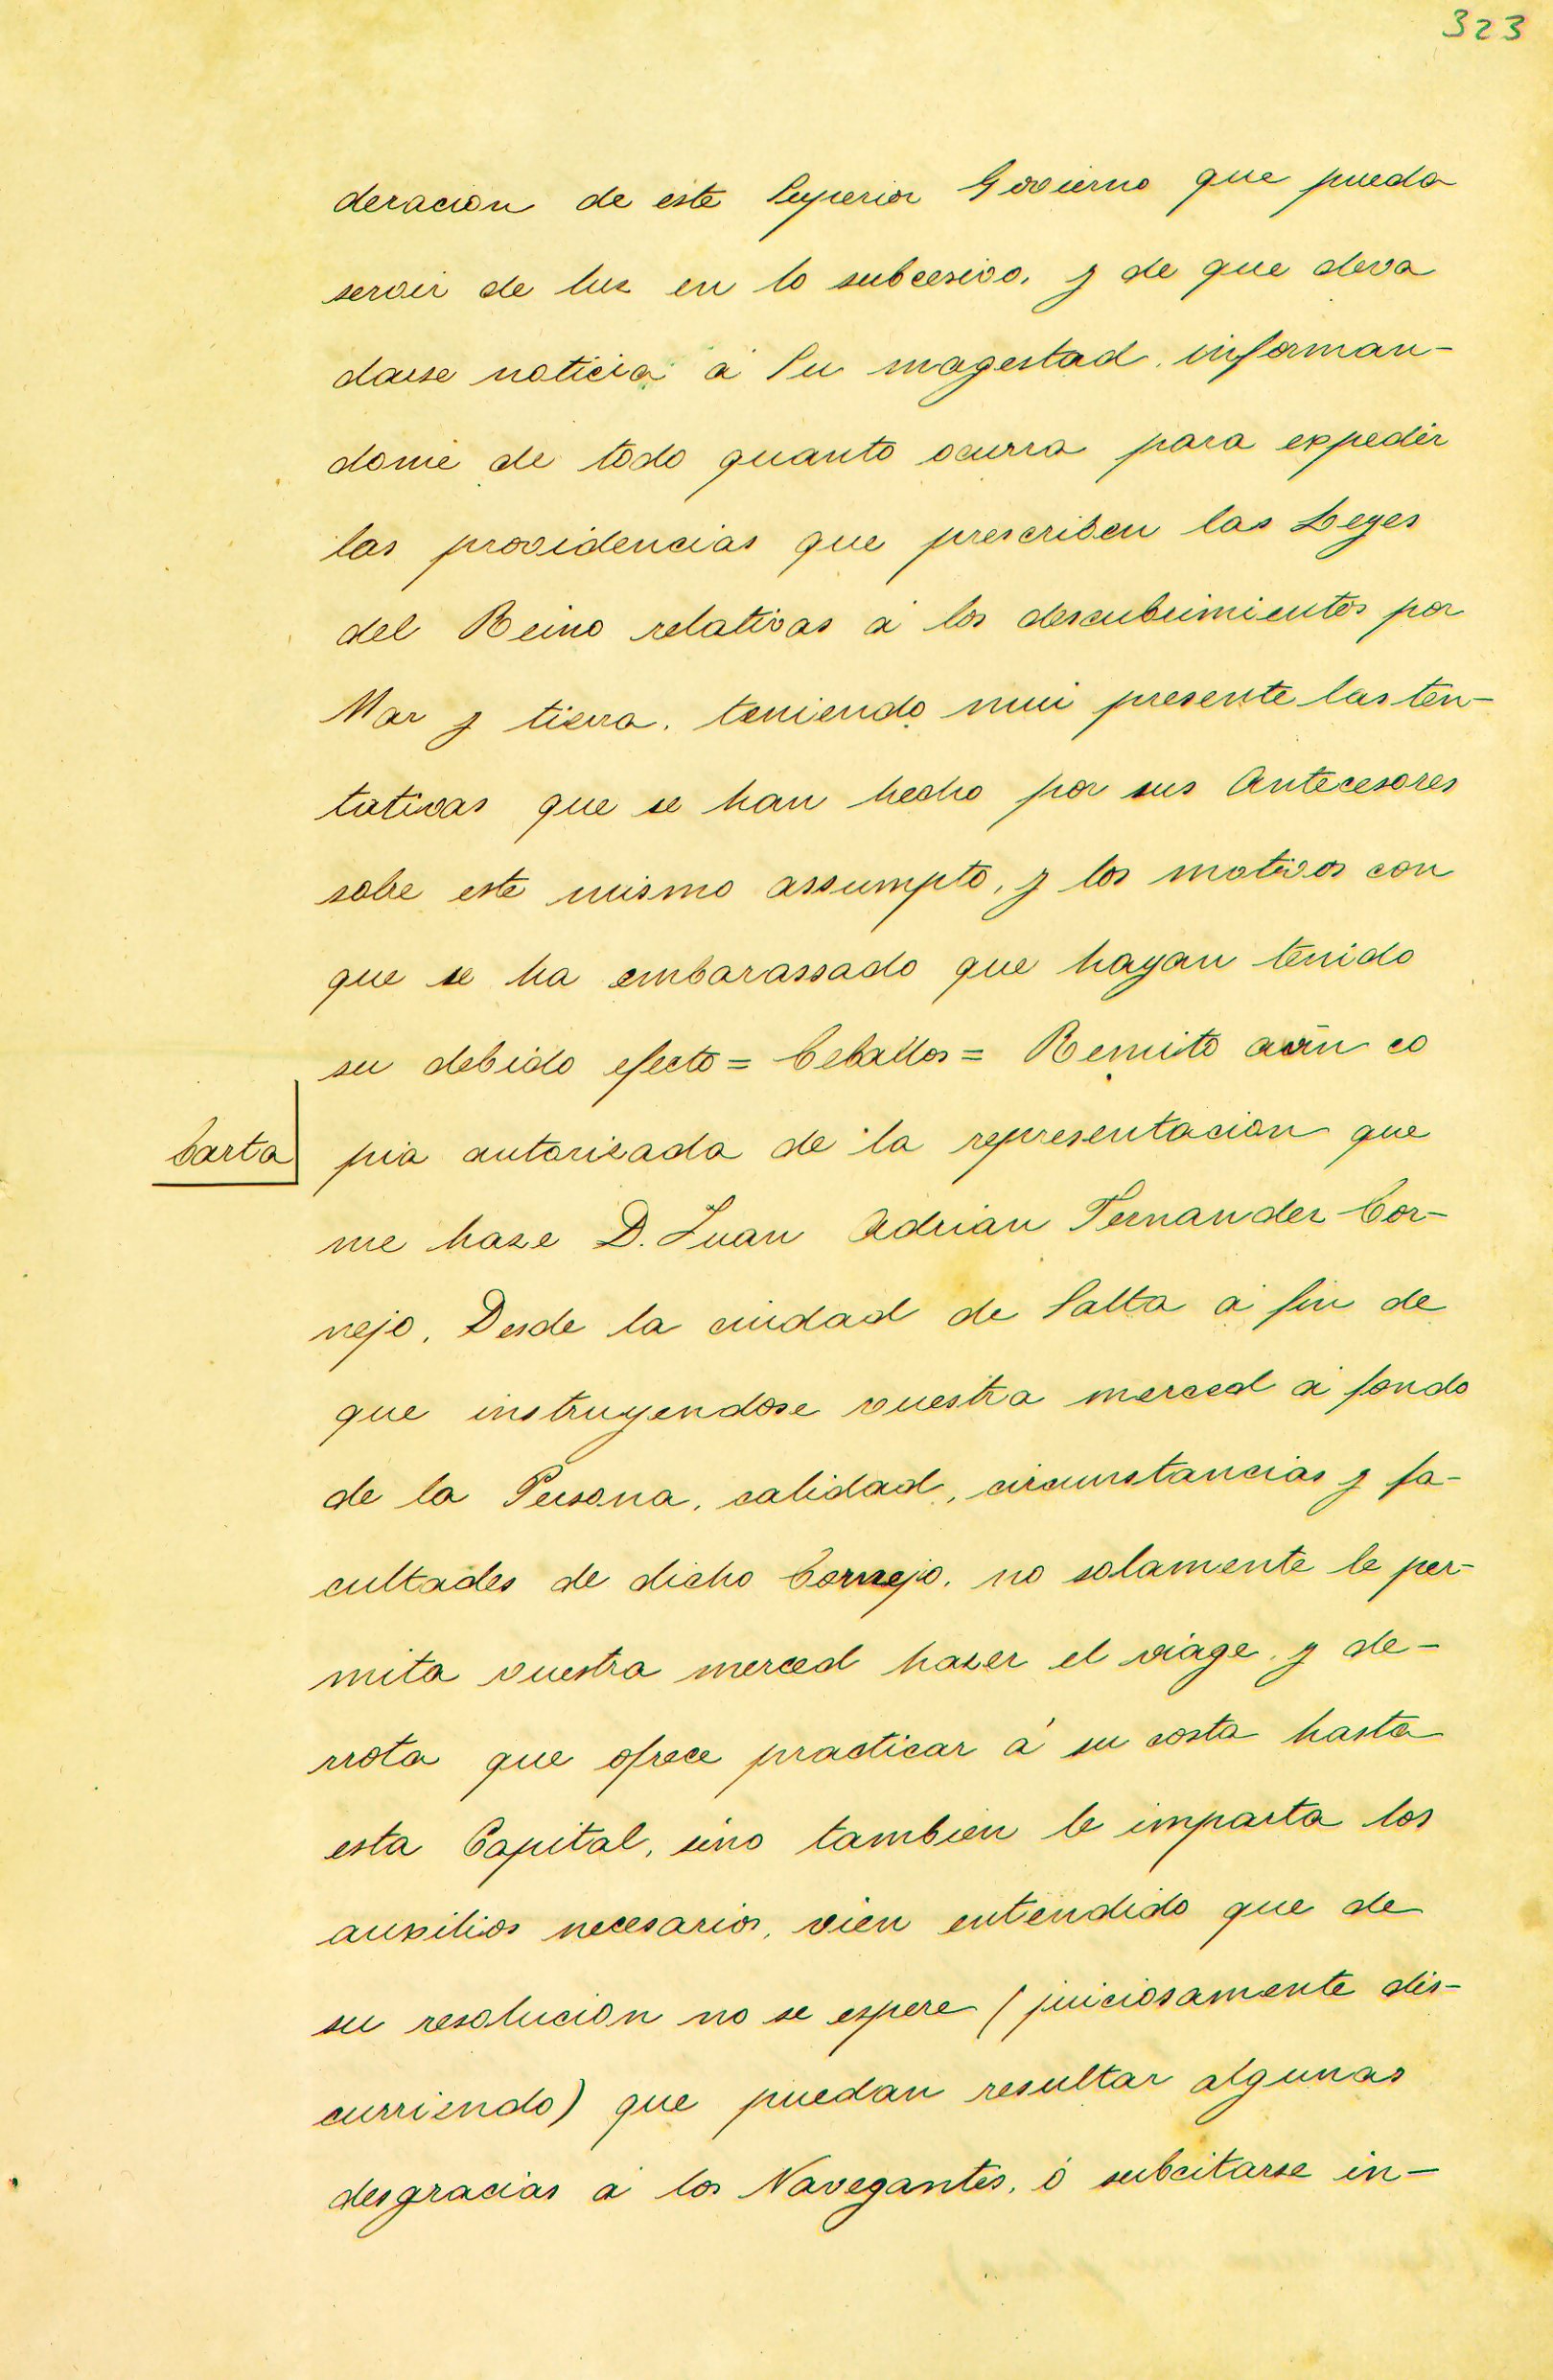 323
deracion de este Superior Govierno que pueda
servir de luz en lo subcesivo, y de que deva
darse noticia á Su magestad, informan-
dome de todo quanto ocurra para expedir
las providencias que prescriben las Leyes
del Reino relativas á los descubrimientos por
Mar y tierra, teniendo mui presente las ten-
tativas que se han hecho por sus Antecesores
sobre este mismo assumpto, y los motivos con
que se ha embarassado que hayan tenido
su debido efecto = Ceballos = Remito aún co
Carta
pia autorizada de la representacion que
me haze D. Juan Adrian Fernandez Cor-
nejo, Desde la ciudad de Salta á fin de
que instruyendose vuestra merced á fondo
de la Persona, calidad, circunstancias y fa-
cultades de dicho Cornejo, no solamente le per-
mita vuestra merced hazer el viage, y de-
rrota que ofrece practicar á su costa hasta
esta Capital, sino tambien le imparta los
auxilios necesarios, vien entendido que de
su resolucion no se espere (juiciosamente dis-
curriendo) que puedan resultar algunas
desgracias á los Navegantes, ó subcitarse in-